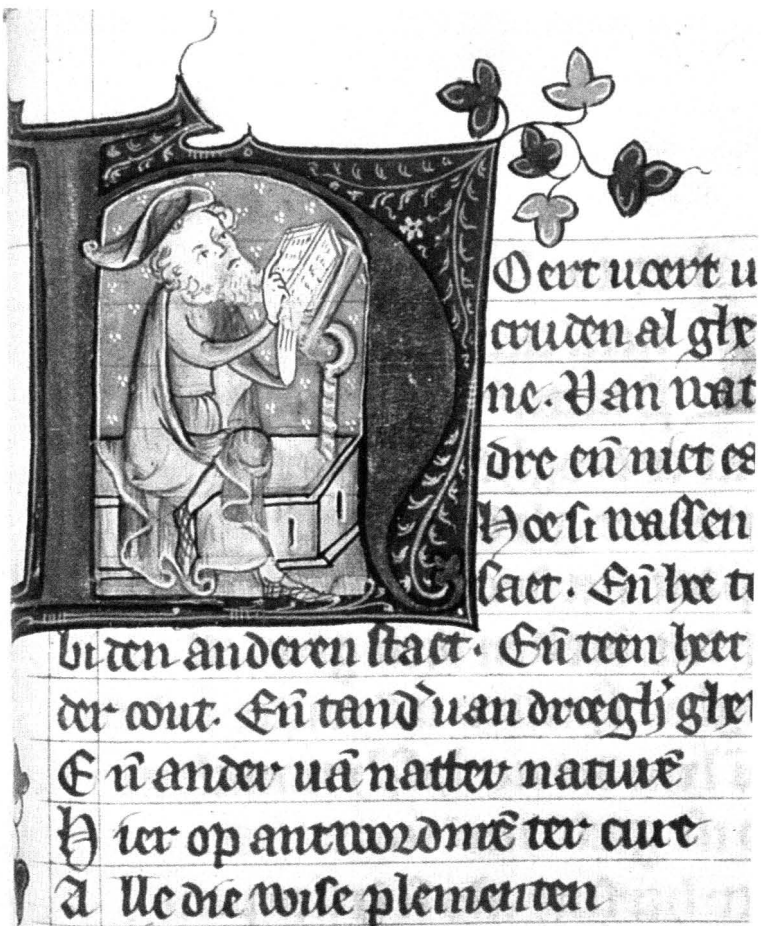 HOert uoert u
cruden al ghe
ne. Van wat
dre eñ niet es
Hoe si wassen
saet. Eñ hoe t
bi den anderen staet. Eñ teen heet
der cout. Eñ tand' uan droegh' ghe
Eñ ander uā natter naturē
Hier op antwordmē ter cure
Alle die wise plementen